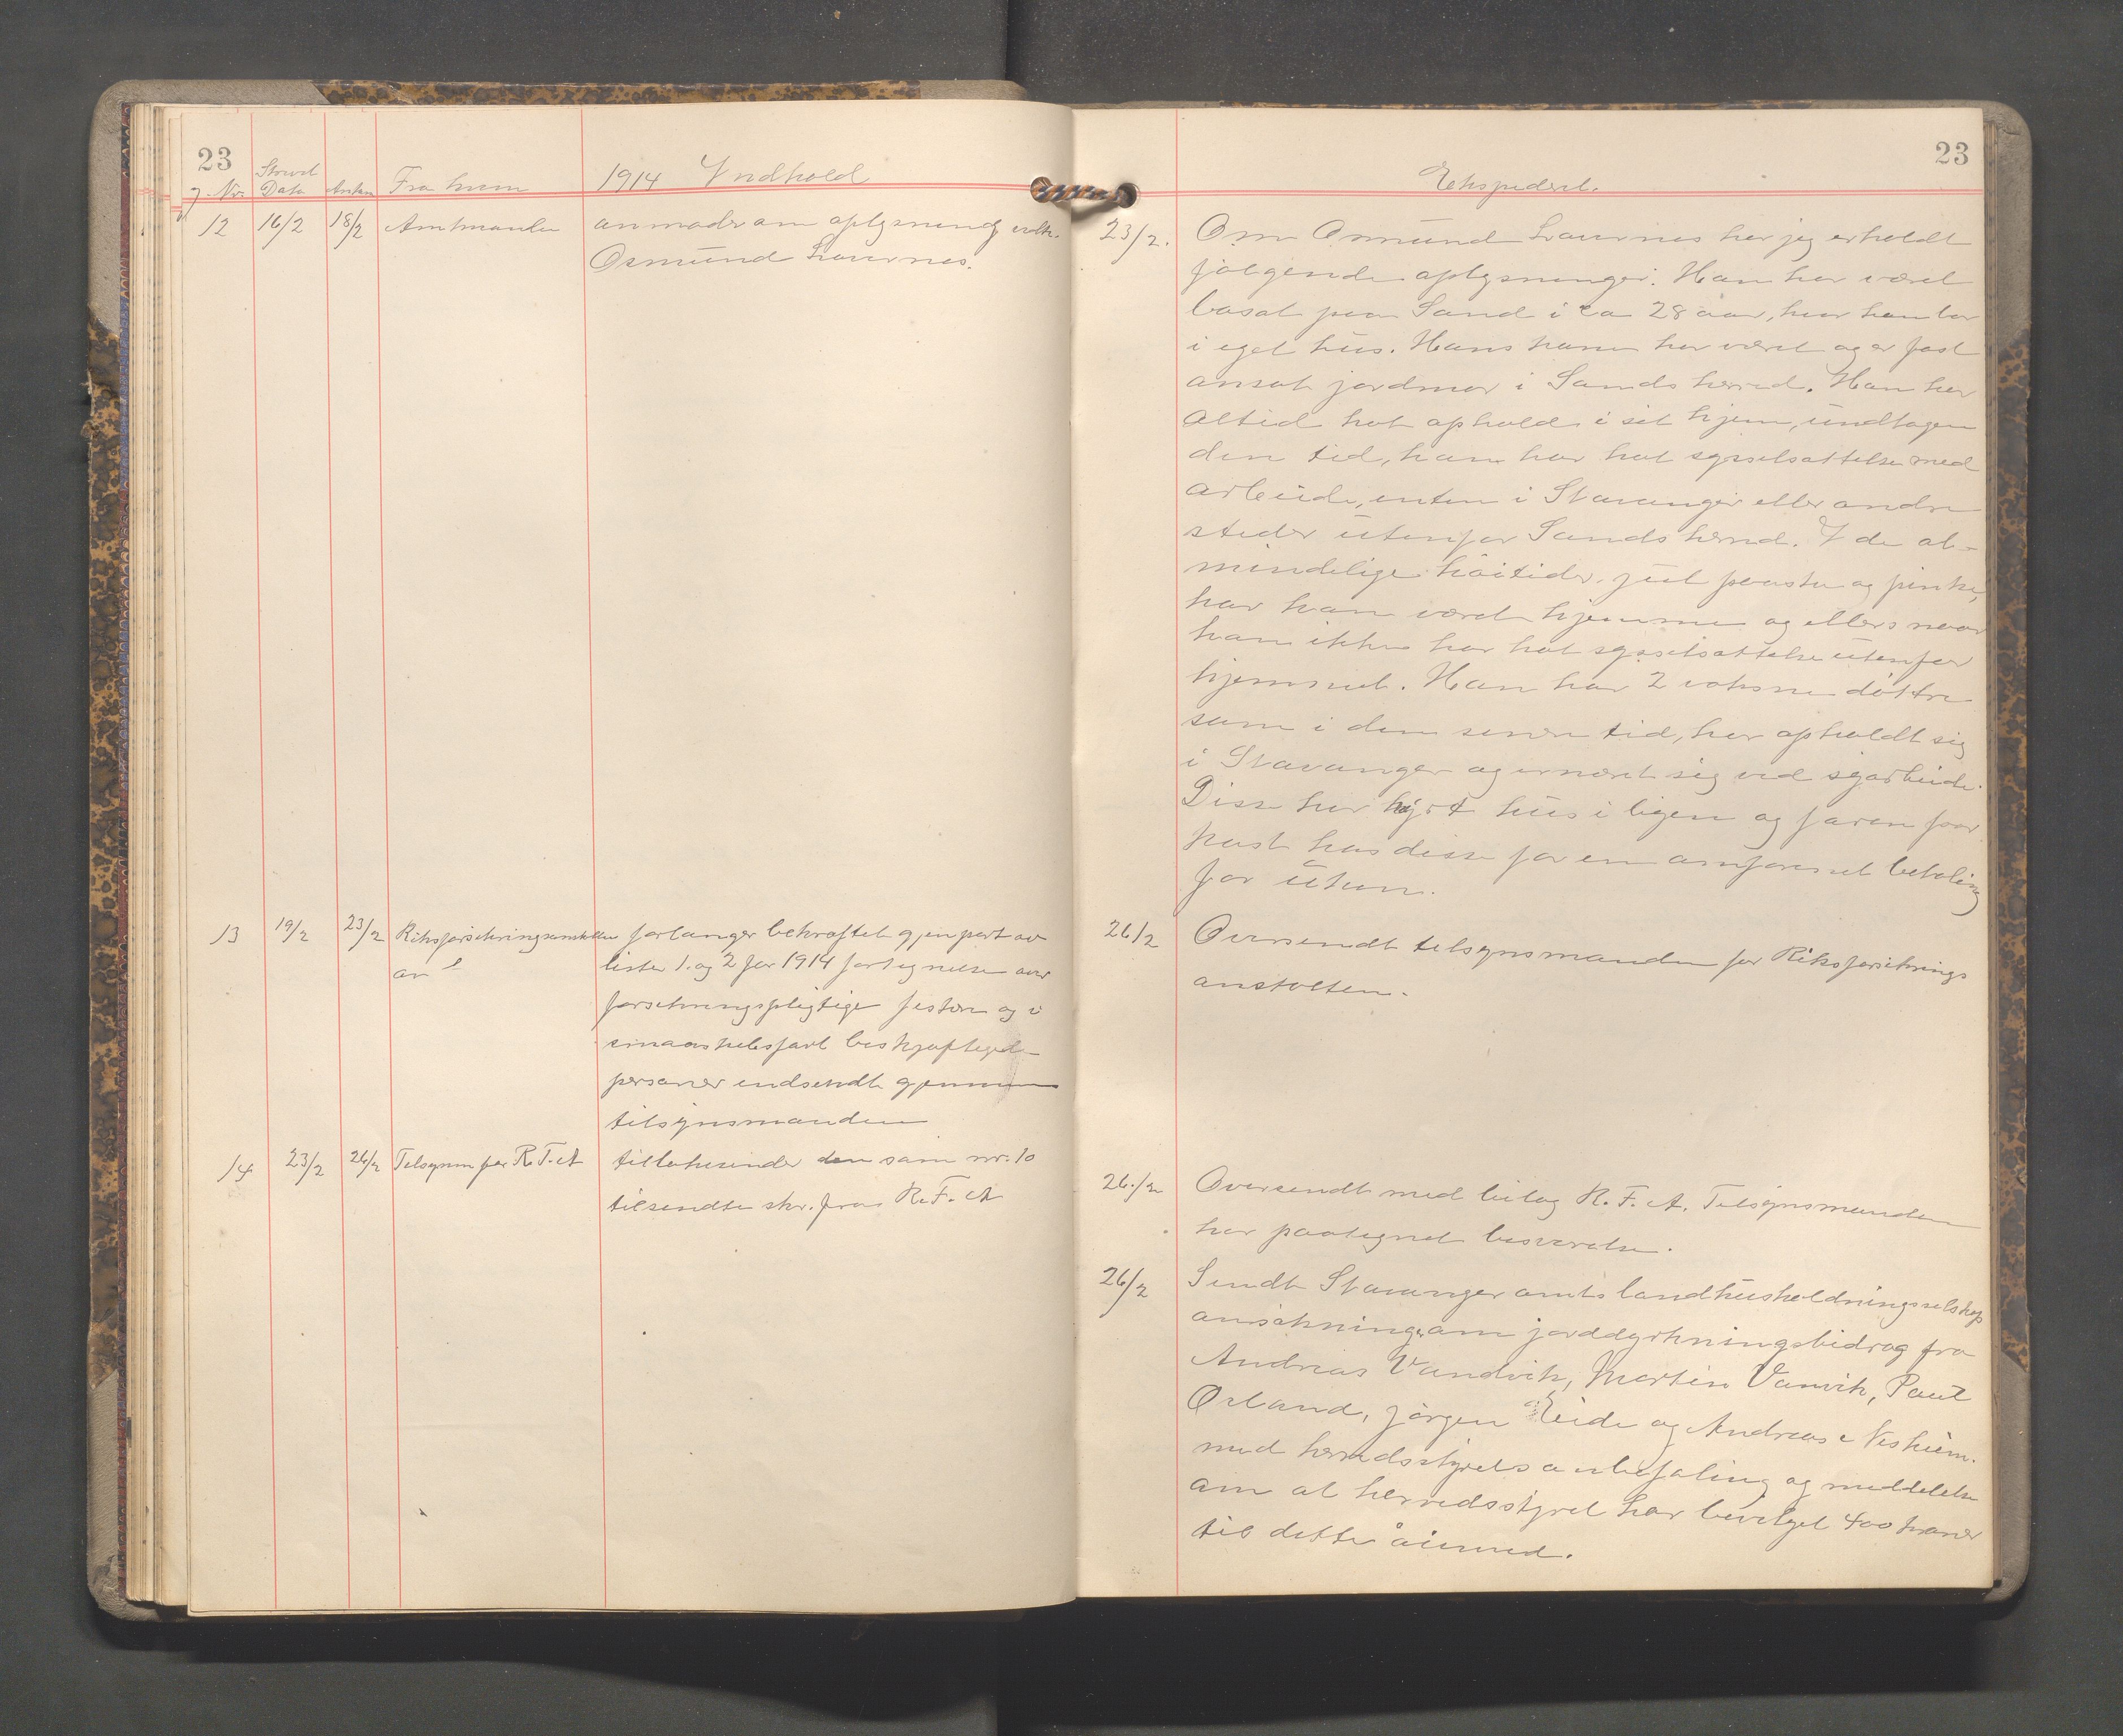 23
J. Nr. Skrivel Data Ankom Fra hvem 1914 Indhold
12 16/2 18/2 Amtmanden anmoder om oplysning vedk.
Osmund Laurnes.
13 19/2 23/2 Riksforsikringsanstalten forlanger bekræftet gjenpart av
lister 1. og 2 for 1914 fortegnelse over
forsikringspligtige fiskere og i
smaaskibsfart beskjæftigede
personer indsendt gjennem
tilsynsmanden
14 23/2 26/2 Tilsynsm for R.F.A tilbakesender den som nr. 10
tilsendte skr. fra R.F.A
23
Ekspederet.
23/2. Om Osmund Laurnes har jeg erholdt
følgende oplysninger. Han har været
bosat paa Sand i ca 28 aar, hvor han bor
i eget hus. Hans kone har været og er fast
ansat jordmor i Sands herred. Han har
altid hat ophold i sit hjem, undtagen
den tid, han har hat sysselsættelse med
arbeide, enten i Stavanger eller andre
steder utenfor Sands herred. I de al-
mindelige høitider, jul paaske og pinse,
har han været hjemme og ellers naar
han ikke har hat sysselsættelse utenfor
hjemmet. Han har 2 voksne døttre
som i den senere tid, har opholdt sig
i Stavanger og ernæret sig ved syarbeide.
Disse har hyrt hus i byen og faren faar
kost hos disse for en omforenet betaling
for uken.
26/2 Oversendt tilsynsmanden for Riksforsikrings
anstalten.
26./2 Oversendt med bilag R.F.A. Tilsynsmanden
har paategnet besvarelse.
26/2 Sendt Stavanger amts landhusholdningsselskap
ansøkninger om jorddyrkningsbidrag fra
Andreas Vandvik, Martin Vanvik, Paul
Ørland, Jørgen Eide og Andreas Nesheim.
med herredsstyrets anbefaling og meddelelse
om at herredsstyret har bevilget 400 kroner
til dette øiemed.